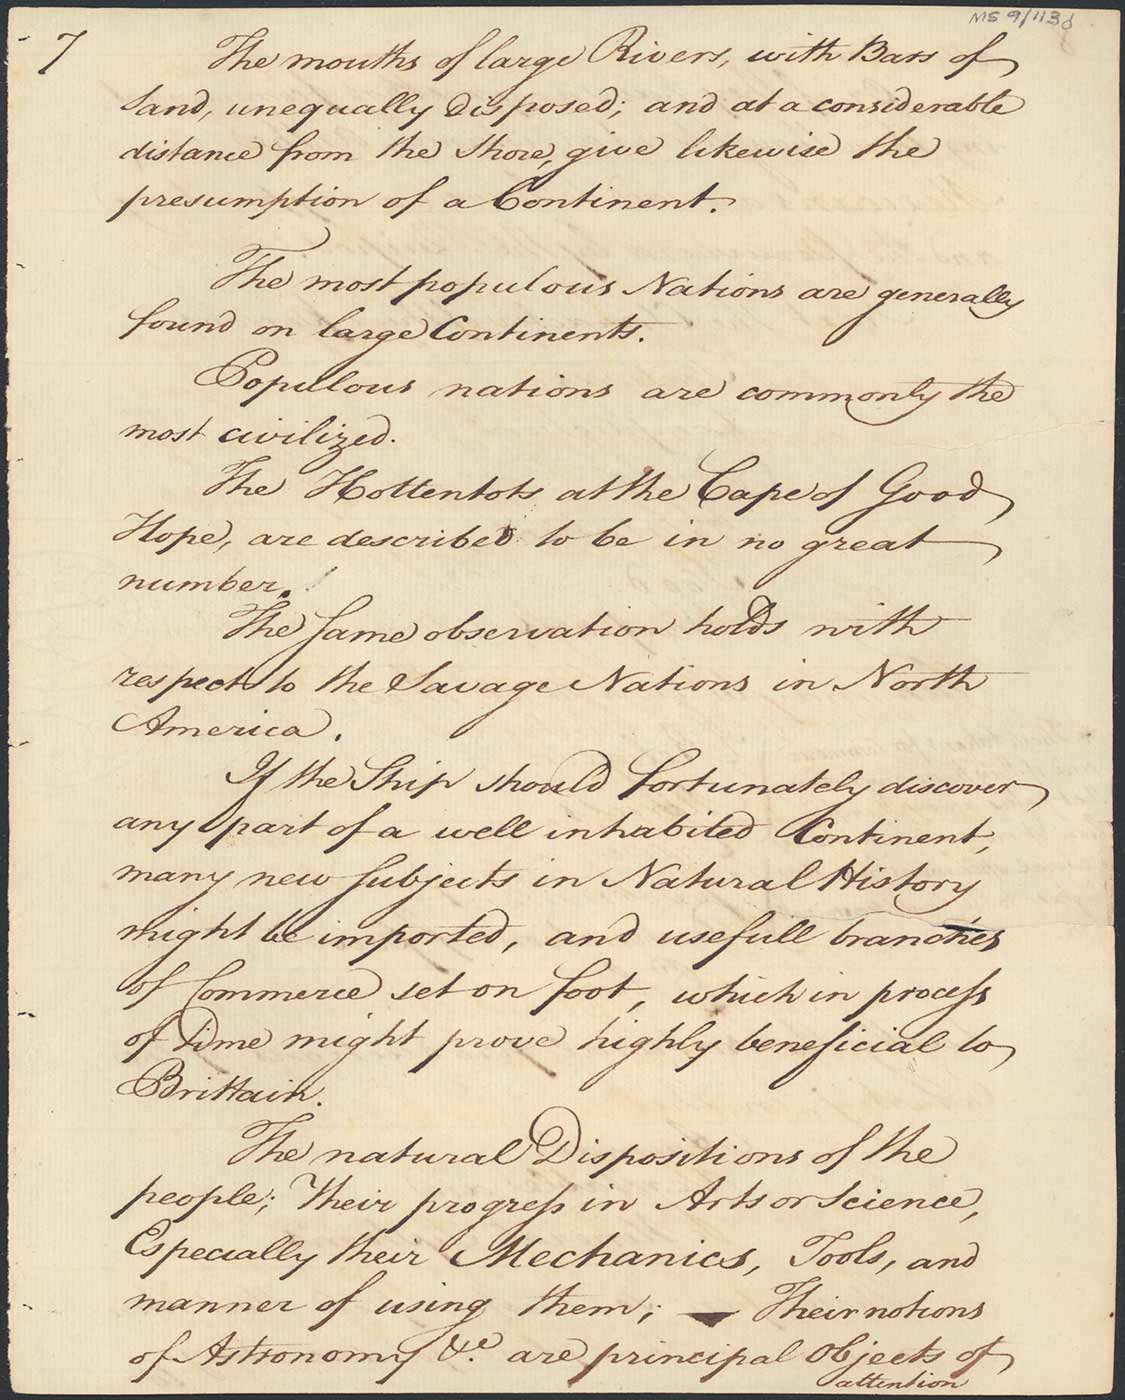 MS 9/113d
7
The mouths of large Rivers, with Bars of
Sand, unequally disposed; and at a considerable
distance from the Shore, give likewise the
presumption of a Continent.
The most populous Nations are generally
found on large Continents.
Populous nations are commonly the
most civilized.
The Hottentots at the Cape of Good
Hope, are described to be in no great
number.
The same observation holds with
respect to the Savage Nations in North
America.
If the Ship should fortunately discover
any part of a well inhabited Continent,
many new subjects in Natural History
might be imported, and usefull branches
of Commerce set on foot, which in process
of Time might prove highly beneficial to
Brittain.
The natural Dispositions of the
people; Their progress in Arts or Science,
Especially their Mechanics, Tools, and
manner of using them; — Their notions
of Astronomy &c. are principal Objects of
attention